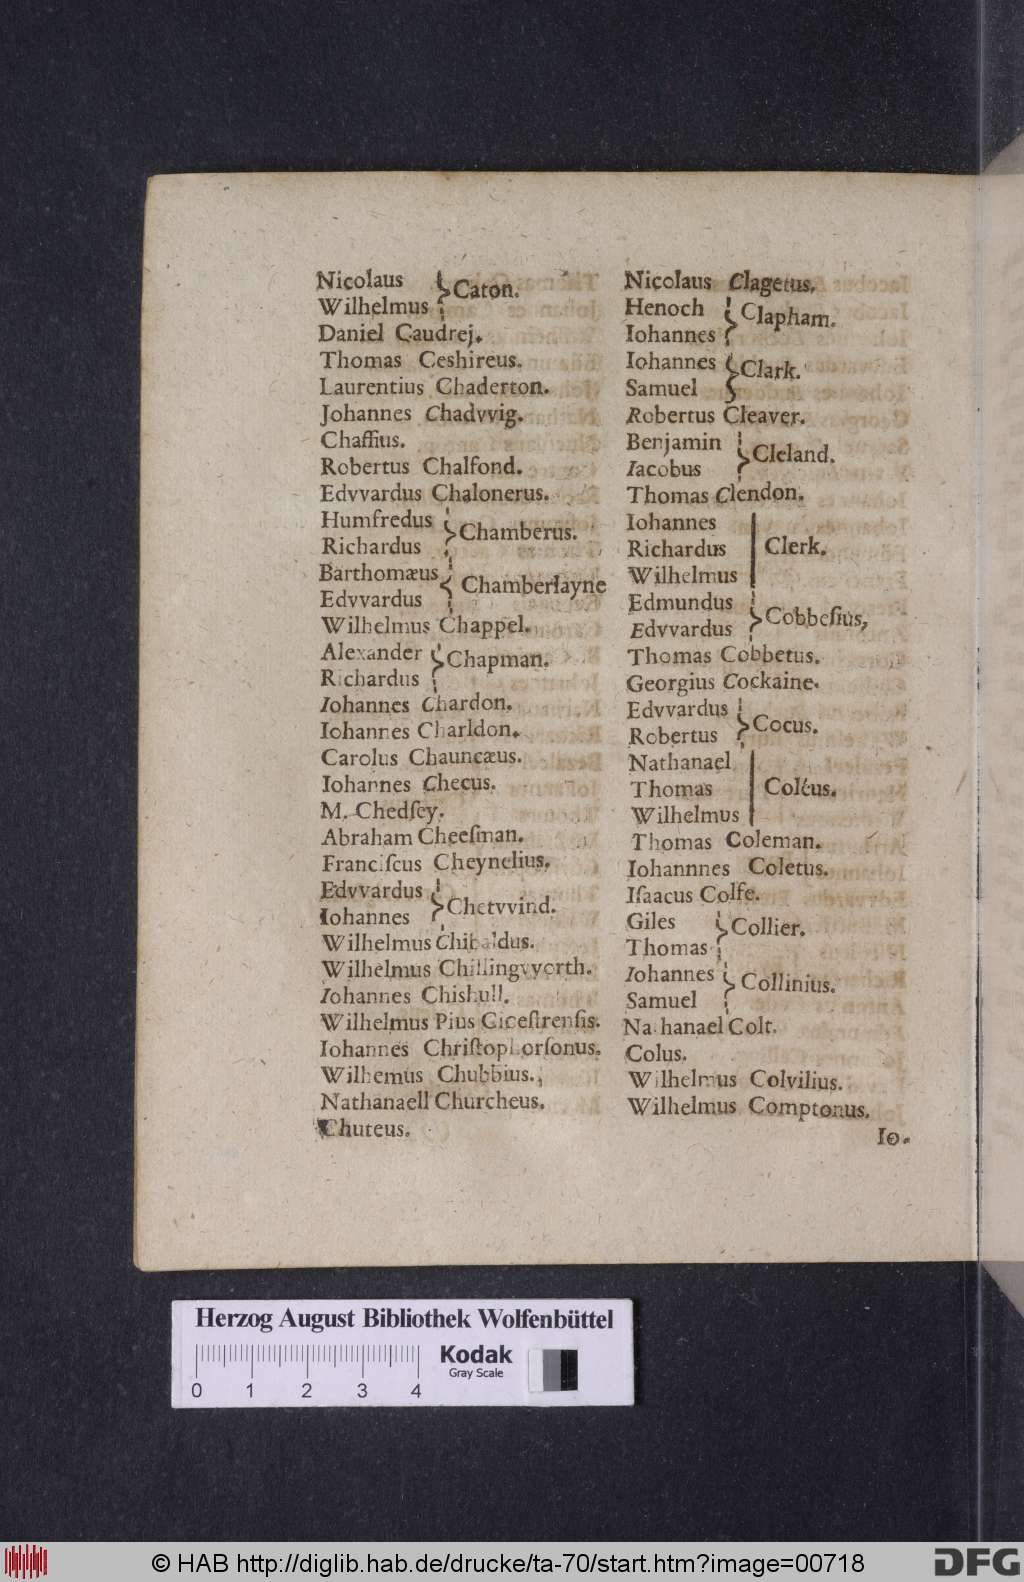 Nicolaus
Wilhelmus } Caton.
Daniel Caudrej.
Thomas Ceshireus.
Laurentius Chaderton.
Johannes Chadvvig.
Chaffius.
Robertus Chalfond.
Edvvardus Chalonerus.
Humfredus
Richardus } Chamberus.
Barthomæus
Edvvardus { Chamberlayne
Wilhelmus Chappel.
Alexander
Richardus } Chapman.
Iohannes Chardon.
Iohannes Charldon.
Carolus Chauncæus.
Iohannes Checus.
M. Chedſey.
Abraham Cheeſman.
Franciſcus Cheynelius.
Edvvardus
Iohannes } Chetvvind.
Wilhelmus Chibaldus.
Wilhelmus Chillingvvorth.
Iohannes Chishull.
Wilhelmus Pius Ciceſtrenſis.
Iohannes Chriſtophorſonus.
Wilhemus Chubbius.
Nathanaell Churcheus.
Chuteus.
Nicolaus Clagetus.
Henoch
Iohannes } Clapham.
Iohannes
Samuel } Clark.
Robertus Cleaver.
Benjamin
Iacobus } Cleland.
Thomas Clendon.
Iohannes
Richardus | Clerk.
Wilhelmus
Edmundus
Edvvardus } Cobbeſius,
Thomas Cobbetus.
Georgius Cockaine.
Edvvardus
Robertus } Cocus.
Nathanael
Thomas | Coléus.
Wilhelmus
Thomas Coleman.
Iohannnes Coletus.
Iſaacus Colfe.
Giles
Thomas } Collier.
Iohannes
Samuel } Collinius.
Nathanael Colt.
Colus.
Wilhelmus Colvilius.
Wilhelmus Comptonus.
Io.
Herzog August Bibliothek Wolfenbüttel
Kodak
Gray Scale
0 1 2 3 4
© HAB http://diglib.hab.de/drucke/ta-70/start.htm?image=00718
DFG